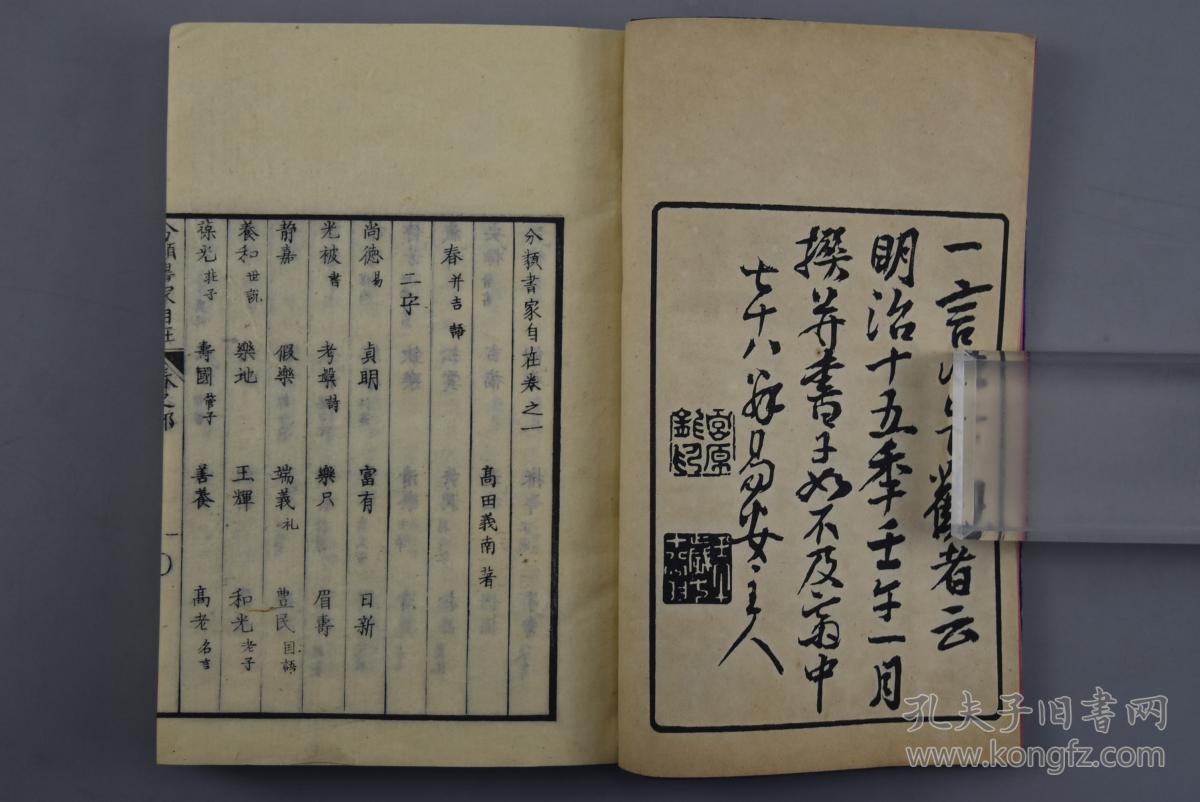 一言
者云
明治十五季壬午一月
撰并書于如不及齋中
七十八
易安主人
宮原
分類書家自在卷之一
高田義南著
春 并吉語
二字
尚德易 貞明 富有 日新
光被書 考槃詩 樂只 眉壽
靜嘉 假樂 端義礼 豊民国語
養和世説 樂地 玉輝 和光老子
葆光 壽國管子 善養 高老名言
分類書家自在 春之部 一
孔夫子旧书网
www.kongfz.com